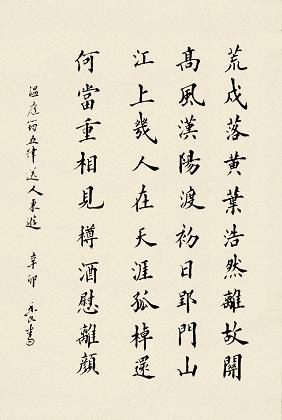 荒戍落黄葉浩然離故關
髙風漢陽渡初日郢門山
江上幾人在天涯孤棹還
何當重相見樽酒慰離顔
温庭筠五律送人東遊 辛卯 書